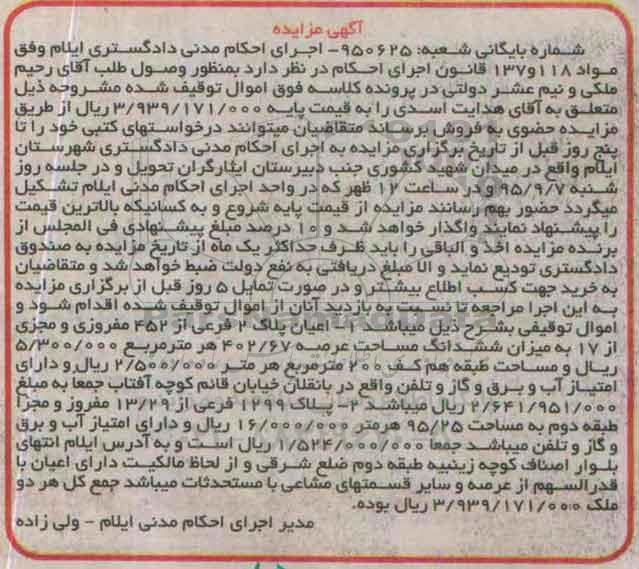 آگهی مزایده
شماره بایگانی شعبه: ۹۵۰۶۲۵- اجرای احکام مدنی دادگستری ایلام وفق
مواد ۱۱۸و۱۳۷ قانون اجرای احکام در نظر دارد بمنظور وصول طلب آقای رحیم
ملکی و نیم عشر دولتی در پرونده کلاسه فوق اموال توقیف شده مشروحه ذیل
متعلق به آقای هدایت اسدی را به قیمت پایه ۳/۹۳۹/۱۷۱/۰۰۰ ریال از طریق
مزایده حضوی به فروش برساند متقاضیان میتوانند درخواستهای کتبی خود را تا
پنج روز قبل از تاریخ برگزاری مزایده به اجرای احکام مدنی دادگستری شهرستان
ایلام واقع در میدان شهید کشوری جنب دبیرستان ایثارگران تحویل و در جلسه روز
شنبه ۹۵/۹/۷ و در ساعت ۱۲ ظهر که در واحد اجرای احکام مدنی ایلام تشکیل
میگردد حضور بهم رسانند مزایده از قیمت پایه شروع و به کسانیکه بالاترین قیمت
را پیشنهاد نمایند واگذار خواهد شد و ۱۰ درصد مبلغ پیشنهادی فی المجلس از
برنده مزایده اخذ و الباقی را باید ظرف حداکثر یک ماه از تاریخ مزایده به صندوق
دادگستری تودیع نماید و الا مبلغ دریافتی به نفع دولت ضبط خواهد شد و متقاضیان
به خرید جهت کسب اطلاع بیشتر و در صورت تمایل ۵ روز قبل از برگزاری مزایده
به این اجرا مراجعه تا نسبت به بازدید آنان از اموال توقیف شده اقدام شود و
اموال توقیفی بشرح ذیل میباشد ۱- اعیان پلاک ۲ فرعی از ۴۵۲ مفروزی و مجزی
از ۱۷ به میزان ششدانگ مساحت عرصه ۴۰۲/۶۷ هر مترمربع ۵/۳۰۰/۰۰۰
ریال و مساحت طبقه هم کف ۲۰۰ مترمربع هر متر ۲/۵۰۰/۰۰۰ ریال و دارای
امتیاز آب و برق و گاز و تلفن واقع در بانقلان خیابان قائم کوچه آفتاب جمعا به مبلغ
۲/۶۴۱/۹۵۱/۰۰۰ ریال میباشد ۲- پلاک ۱۲۹۹ فرعی از ۱۳/۲۹ مفروز و مجزا
طبقه دوم به مساحت ۹۵/۲۵ هرمتر ۱۶/۰۰۰/۰۰۰ ریال و دارای امتیاز آب و برق
و گاز و تلفن میباشد جمعا ۱/۵۲۴/۰۰۰/۰۰۰ ریال است و به آدرس ایلام انتهای
بلوار اصناف کوچه زینبیه طبقه دوم ضلع شرقی و از لحاظ مالکیت دارای اعیان با
قدرالسهم از عرصه و سایر قسمتهای مشاعی با مستحدثات میباشد جمع کل هر دو
ملک ۳/۹۳۹/۱۷۱/۰۰۰ ریال بوده.
مدیر اجرای احکام مدنی ایلام - ولی زاده